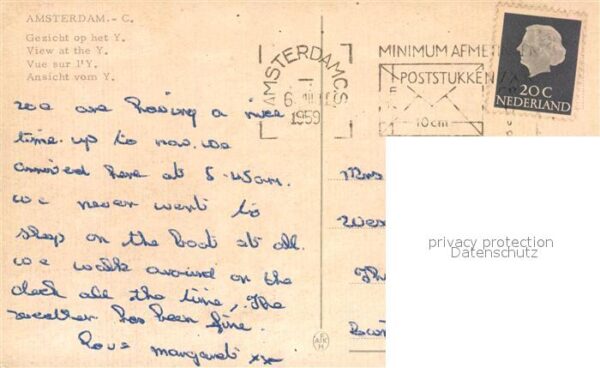 AMSTERDAM.- C.
Gezicht op het Y.
View at the Y.
Vue sur l'Y.
Ansicht vom Y.
we are having a nice
time. up to now. we
arrived here at 5-45am.
we never went to
sleep on the boat at all.
we walk around on the
deck all the time, The
weather has been fine.
Love margaret xx
AMSTERDAM C.S
6
1959
MINIMUM AFME
POSTSTUKKEN
10cm
20C
NEDERLAND
Mrs
Wes
The
privacy protection
Datenschutz